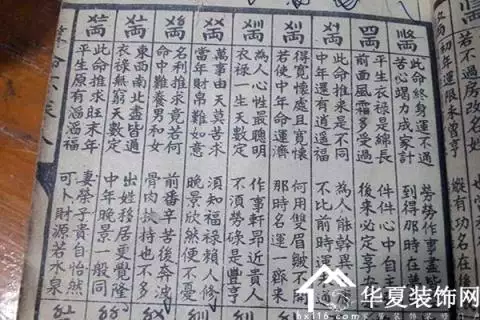 初年運限未曾亨 縱有功名在後
若不過房改名姓
此命終身運不通 勞勞作事盡
苦心竭力成家計 到得那時在
四兩
平生衣祿是綿長 件件心中自
前面風霜多受過 後來必定享
此命推來是不同 為人能幹異
中年還有逍遥福 不比前時運
得寬懷處且寬懷 何用雙眉皺不開
若使中年命運濟 那時名運一齊來
為人心性最聰明 作事軒昂近貴人
衣祿一生天數定 不須勞碌是豐亨
萬事由天莫苦求 須知福祿賴人修
當年財帛難如意 晚景欣然便不憂
名利推求竟若何 前番辛苦後奔波
命中難養男和女 骨肉扶持也不多
東西南北盡皆通 出姓移居更覺隆
衣祿無窮天數定 中年晚景一般同
此命推求旺末年 妻榮子貴自怡然
平生原有滔滔福 可卜財源若水泉
华夏装饰网